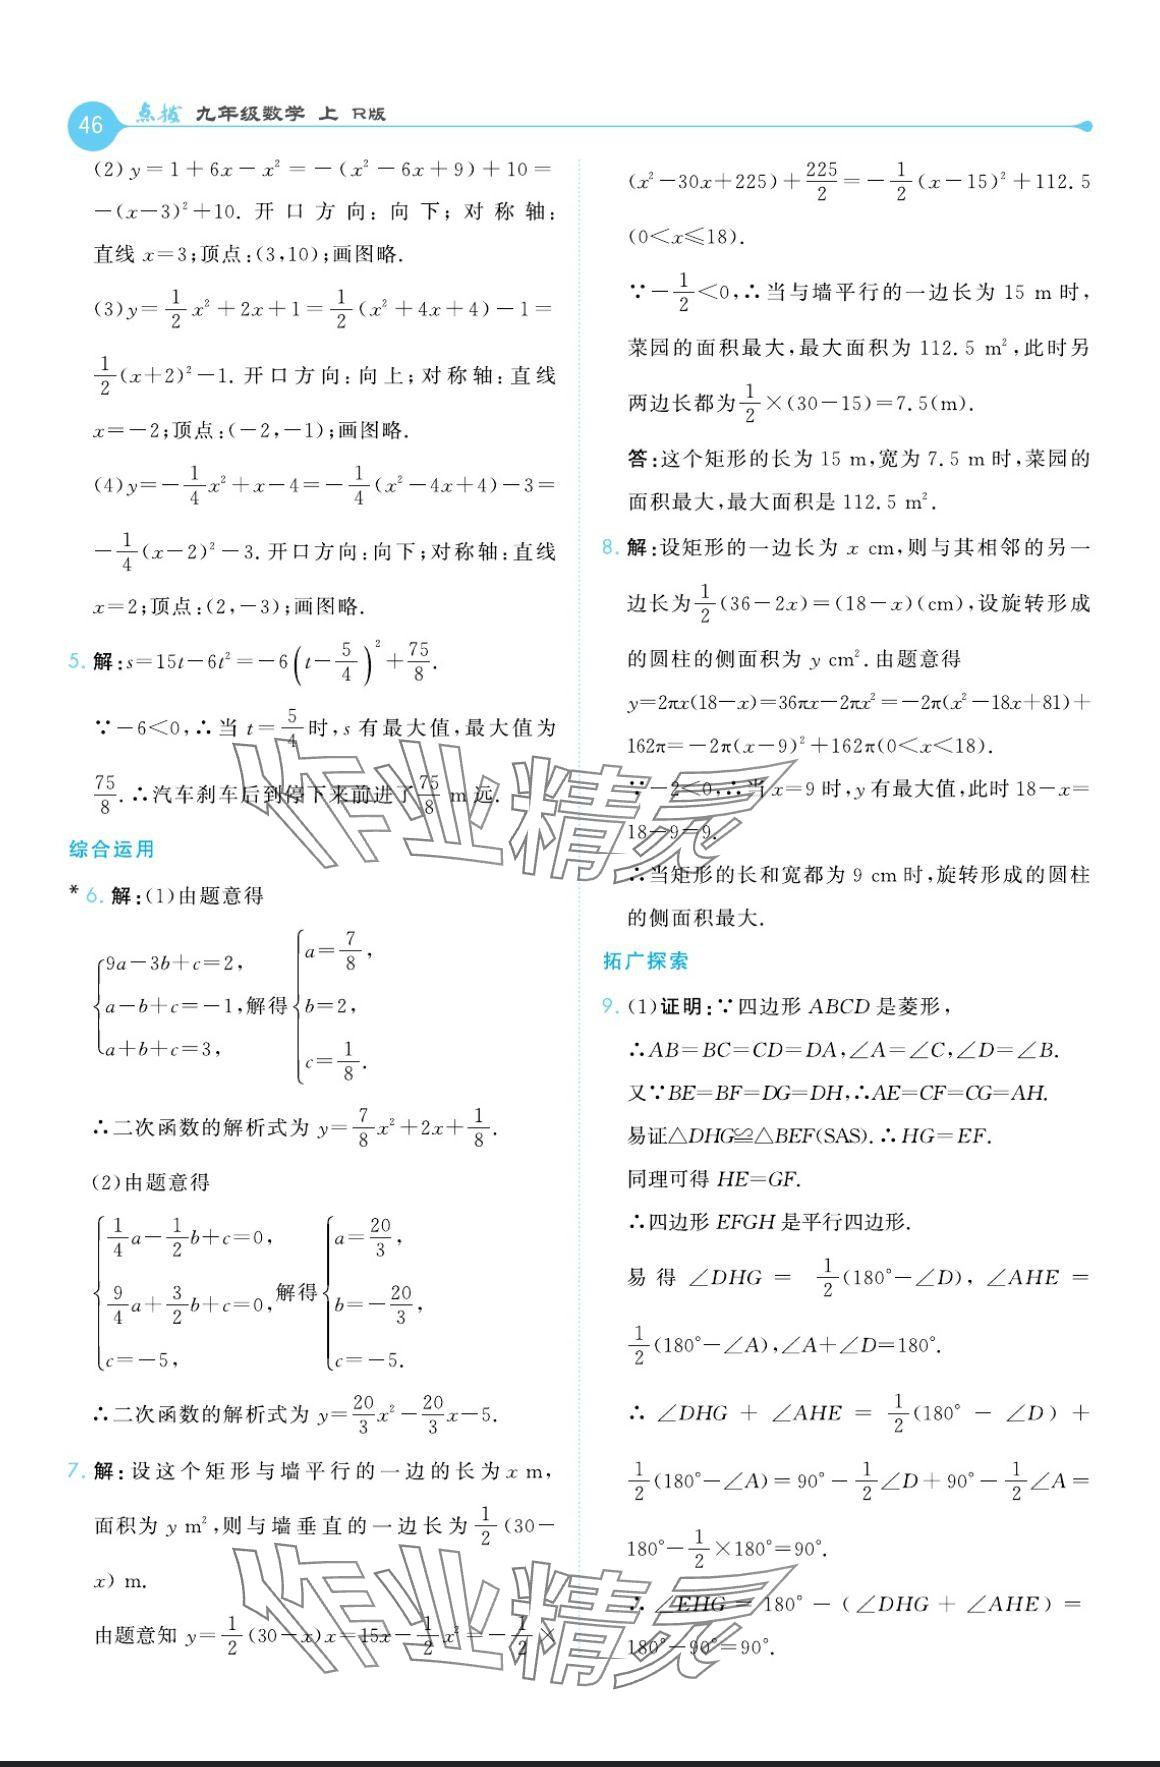 46 点拨 九年级数学 上 R版
(2)y=1+6x-x²=-(x²-6x+9)+10=
-(x-3)²+10. 开口方向:向下;对称轴:
直线 x=3;顶点:(3,10);画图略.
(3)y=1/2x²+2x+1=1/2(x²+4x+4)-1=
1/2(x+2)²-1. 开口方向:向上;对称轴:直线
x=-2;顶点:(-2,-1);画图略.
(4)y=-1/4x²+x-4=-1/4(x²-4x+4)-3=
-1/4(x-2)²-3. 开口方向:向下;对称轴:直线
x=2;顶点:(2,-3);画图略.
5. 解:s=15t-6t²=-6(t-5/4)²+75/8.
∵-6<0,∴当 t=5/4时,s 有最大值,最大值为
75/8.∴汽车刹车后到停下来前进了75/8 m远.
综合运用
*6. 解:(1)由题意得
{9a-3b+c=2, a-b+c=-1, a+b+c=3, 解得{a=7/8, b=2, c=1/8.
∴二次函数的解析式为 y=7/8x²+2x+1/8.
(2)由题意得
{1/4a-1/2b+c=0, 9/4a+3/2b+c=0, c=-5, 解得{a=20/3, b=-20/3, c=-5.
∴二次函数的解析式为 y=20/3x²-20/3x-5.
7. 解:设这个矩形与墙平行的一边的长为 x m,
面积为 y m²,则与墙垂直的一边长为1/2(30-
x) m.
由题意知 y=1/2(30-x)x=15x-1/2x²=-1/2×
(x²-30x+225)+225/2=-1/2(x-15)²+112.5
(0<x≤18).
∵-1/2<0,∴当与墙平行的一边长为 15 m 时,
菜园的面积最大,最大面积为 112.5 m²,此时另
两边长都为1/2×(30-15)=7.5(m).
答:这个矩形的长为 15 m,宽为 7.5 m 时,菜园的
面积最大,最大面积是 112.5 m².
8. 解:设矩形的一边长为 x cm,则与其相邻的另一
边长为1/2(36-2x)=(18-x)(cm),设旋转形成
的圆柱的侧面积为 y cm².由题意得
y=2πx(18-x)=36πx-2πx²=-2π(x²-18x+81)+
162π=-2π(x-9)²+162π(0<x<18).
∵-2<0,∴当 x=9 时,y 有最大值,此时 18-x=
18-9=9.
∴当矩形的长和宽都为 9 cm 时,旋转形成的圆柱
的侧面积最大.
拓广探索
9. (1)证明:∵四边形 ABCD 是菱形,
∴AB=BC=CD=DA,∠A=∠C,∠D=∠B.
又∵BE=BF=DG=DH,∴AE=CF=CG=AH.
易证△DHG≌△BEF(SAS).∴HG=EF.
同理可得 HE=GF.
∴四边形 EFGH 是平行四边形.
易得 ∠DHG = 1/2(180°-∠D), ∠AHE =
1/2(180°-∠A),∠A+∠D=180°.
∴ ∠DHG + ∠AHE = 1/2(180° - ∠D) +
1/2(180°-∠A)=90°-1/2∠D+90°-1/2∠A=
180°-1/2×180°=90°.
∴ ∠EHG = 180° - (∠DHG + ∠AHE) =
180°-90°=90°.
作业精灵
作业精灵